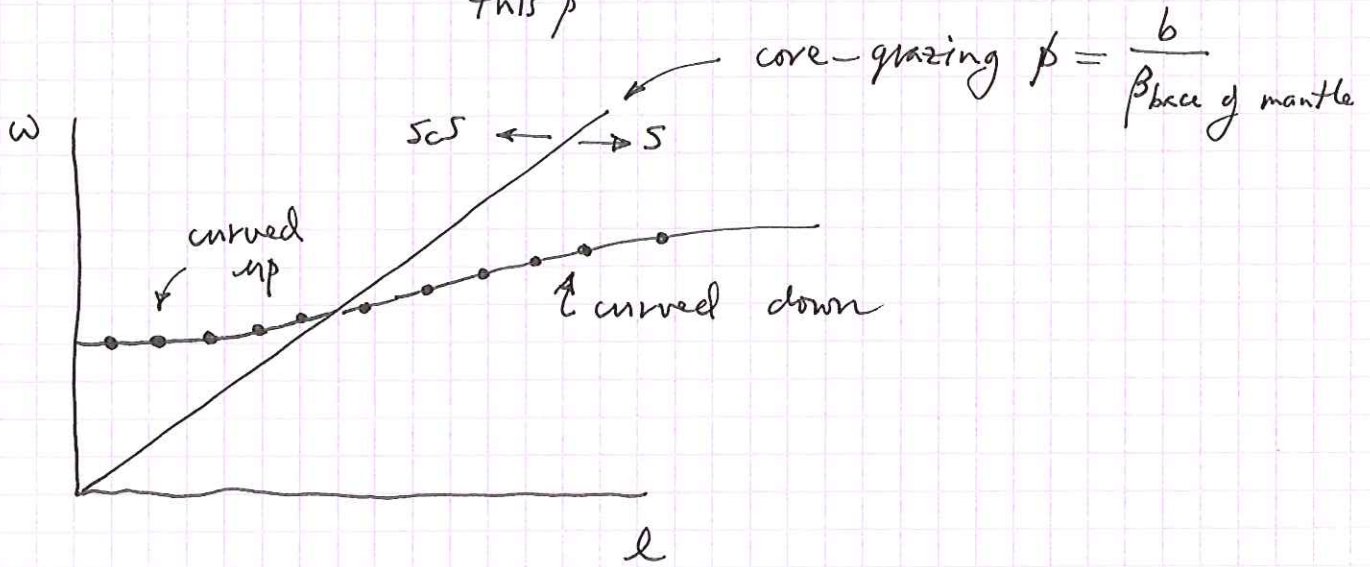 This p
core-grazing p = b / β base of mantle
ω
ScS ← → S
curved
up
curved down
l